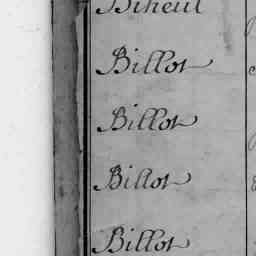 Biheul
Billot
Billot
Billot
Billot